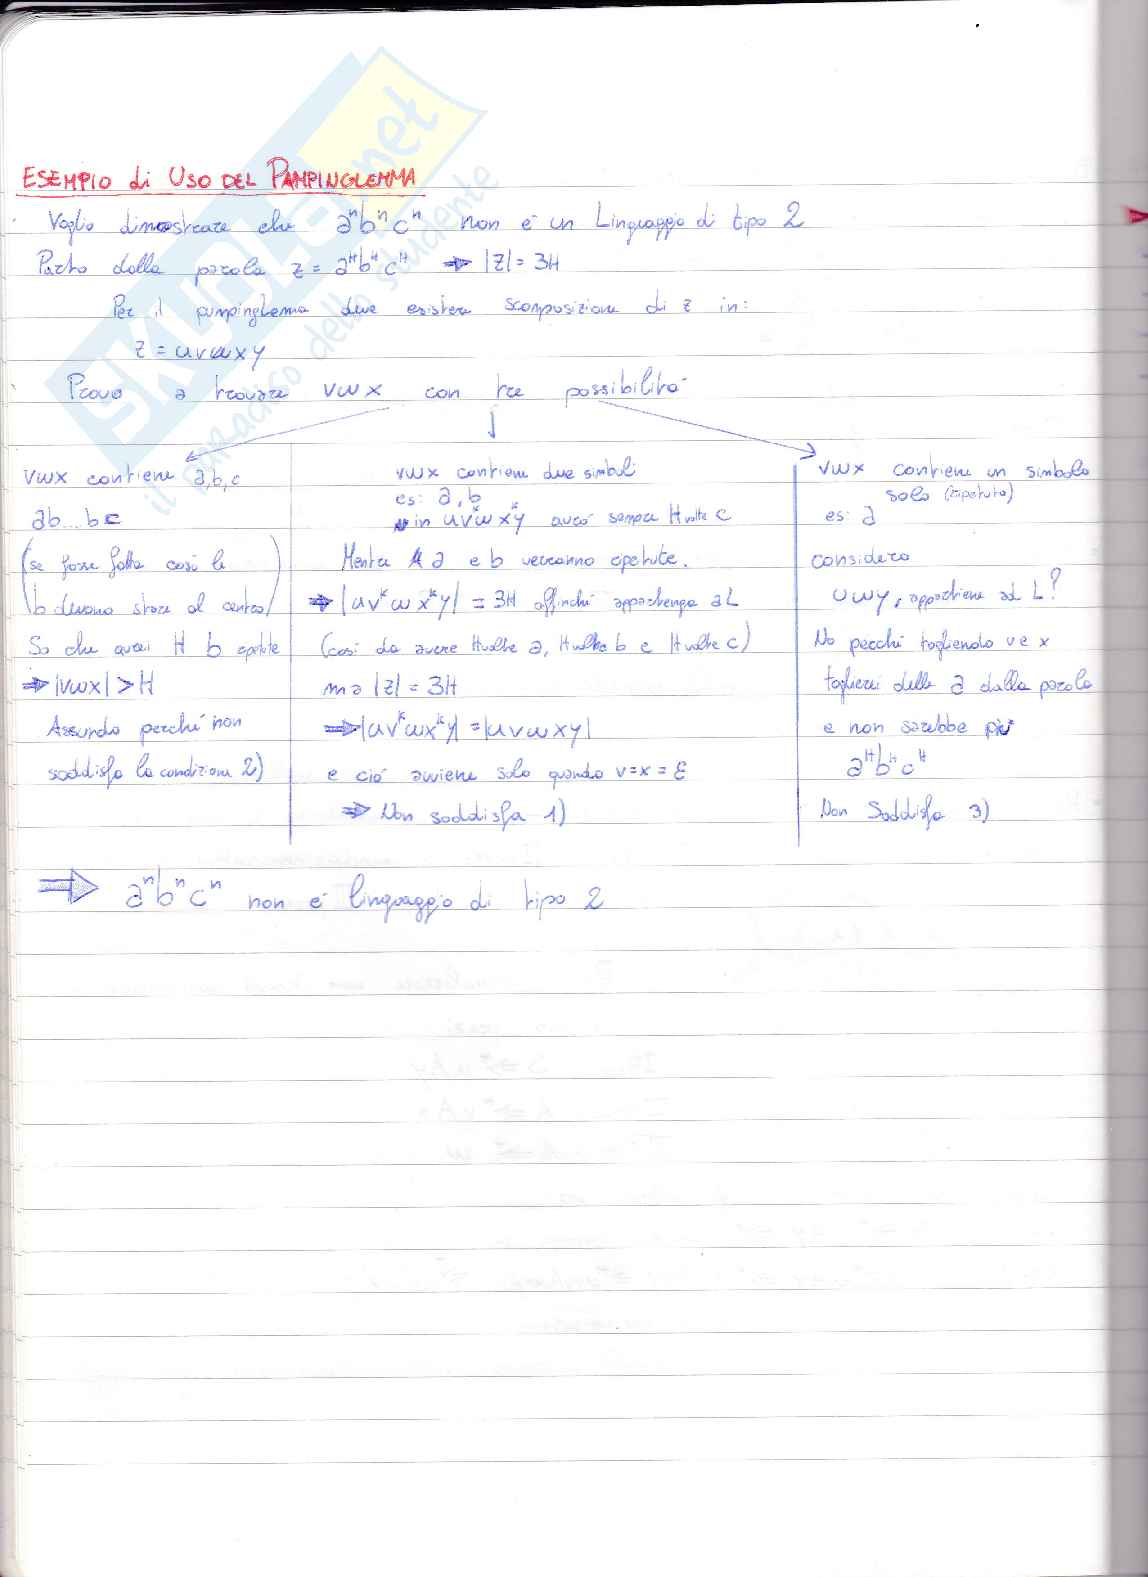 SKUOLA.net
il paradiso dello studente
ESEMPIO di USO DEL PAMPINGLEMMA
Voglio dimostrare che aⁿbⁿcⁿ non è un Linguaggio di tipo 2
Parto dalla parola z = aᴴbᴴcᴴ ⇒ |z| = 3H
Per il pumpinglemma deve esistere scomposizione di z in:
z = uvwxy
Provo a trovare vwx con tre possibilità
vwx contiene a,b,c
ab...bc
(se fosse fatta così le
b devono stare al centro)
So che avrei H b ripetute
⇒ |vwx| > H
Assurdo perché non
soddisfa la condizione 2)
vwx contiene due simboli
es: a, b
in uvᵏwxᵏy avrò sempre H volte c
Mentre a e b verranno ripetute.
⇒ |uvᵏwxᵏy| = 3H affinché appartenga a L
(così da avere H volte a, H volte b e H volte c)
ma |z| = 3H
⇒ |uvᵏwxᵏy| = |uvwxy|
e ciò avviene solo quando v=x=ε
⇒ Non soddisfa 1)
vwx contiene un simbolo
solo (ripetuto)
es: a
considero
uwy, appartiene ad L?
No perché togliendo v e x
toglierei delle a dalla parola
e non sarebbe più
aᴴbᴴcᴴ
Non Soddisfa 3)
⇒ aⁿbⁿcⁿ non è linguaggio di tipo 2